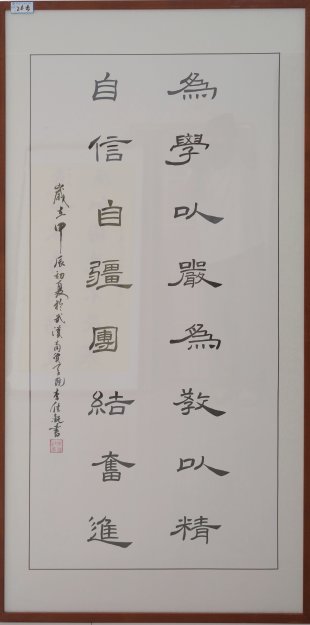 為學以嚴為教以精
自信自彊團結奮進
歲在甲辰初夏於武漢商貿學院李佳乾書